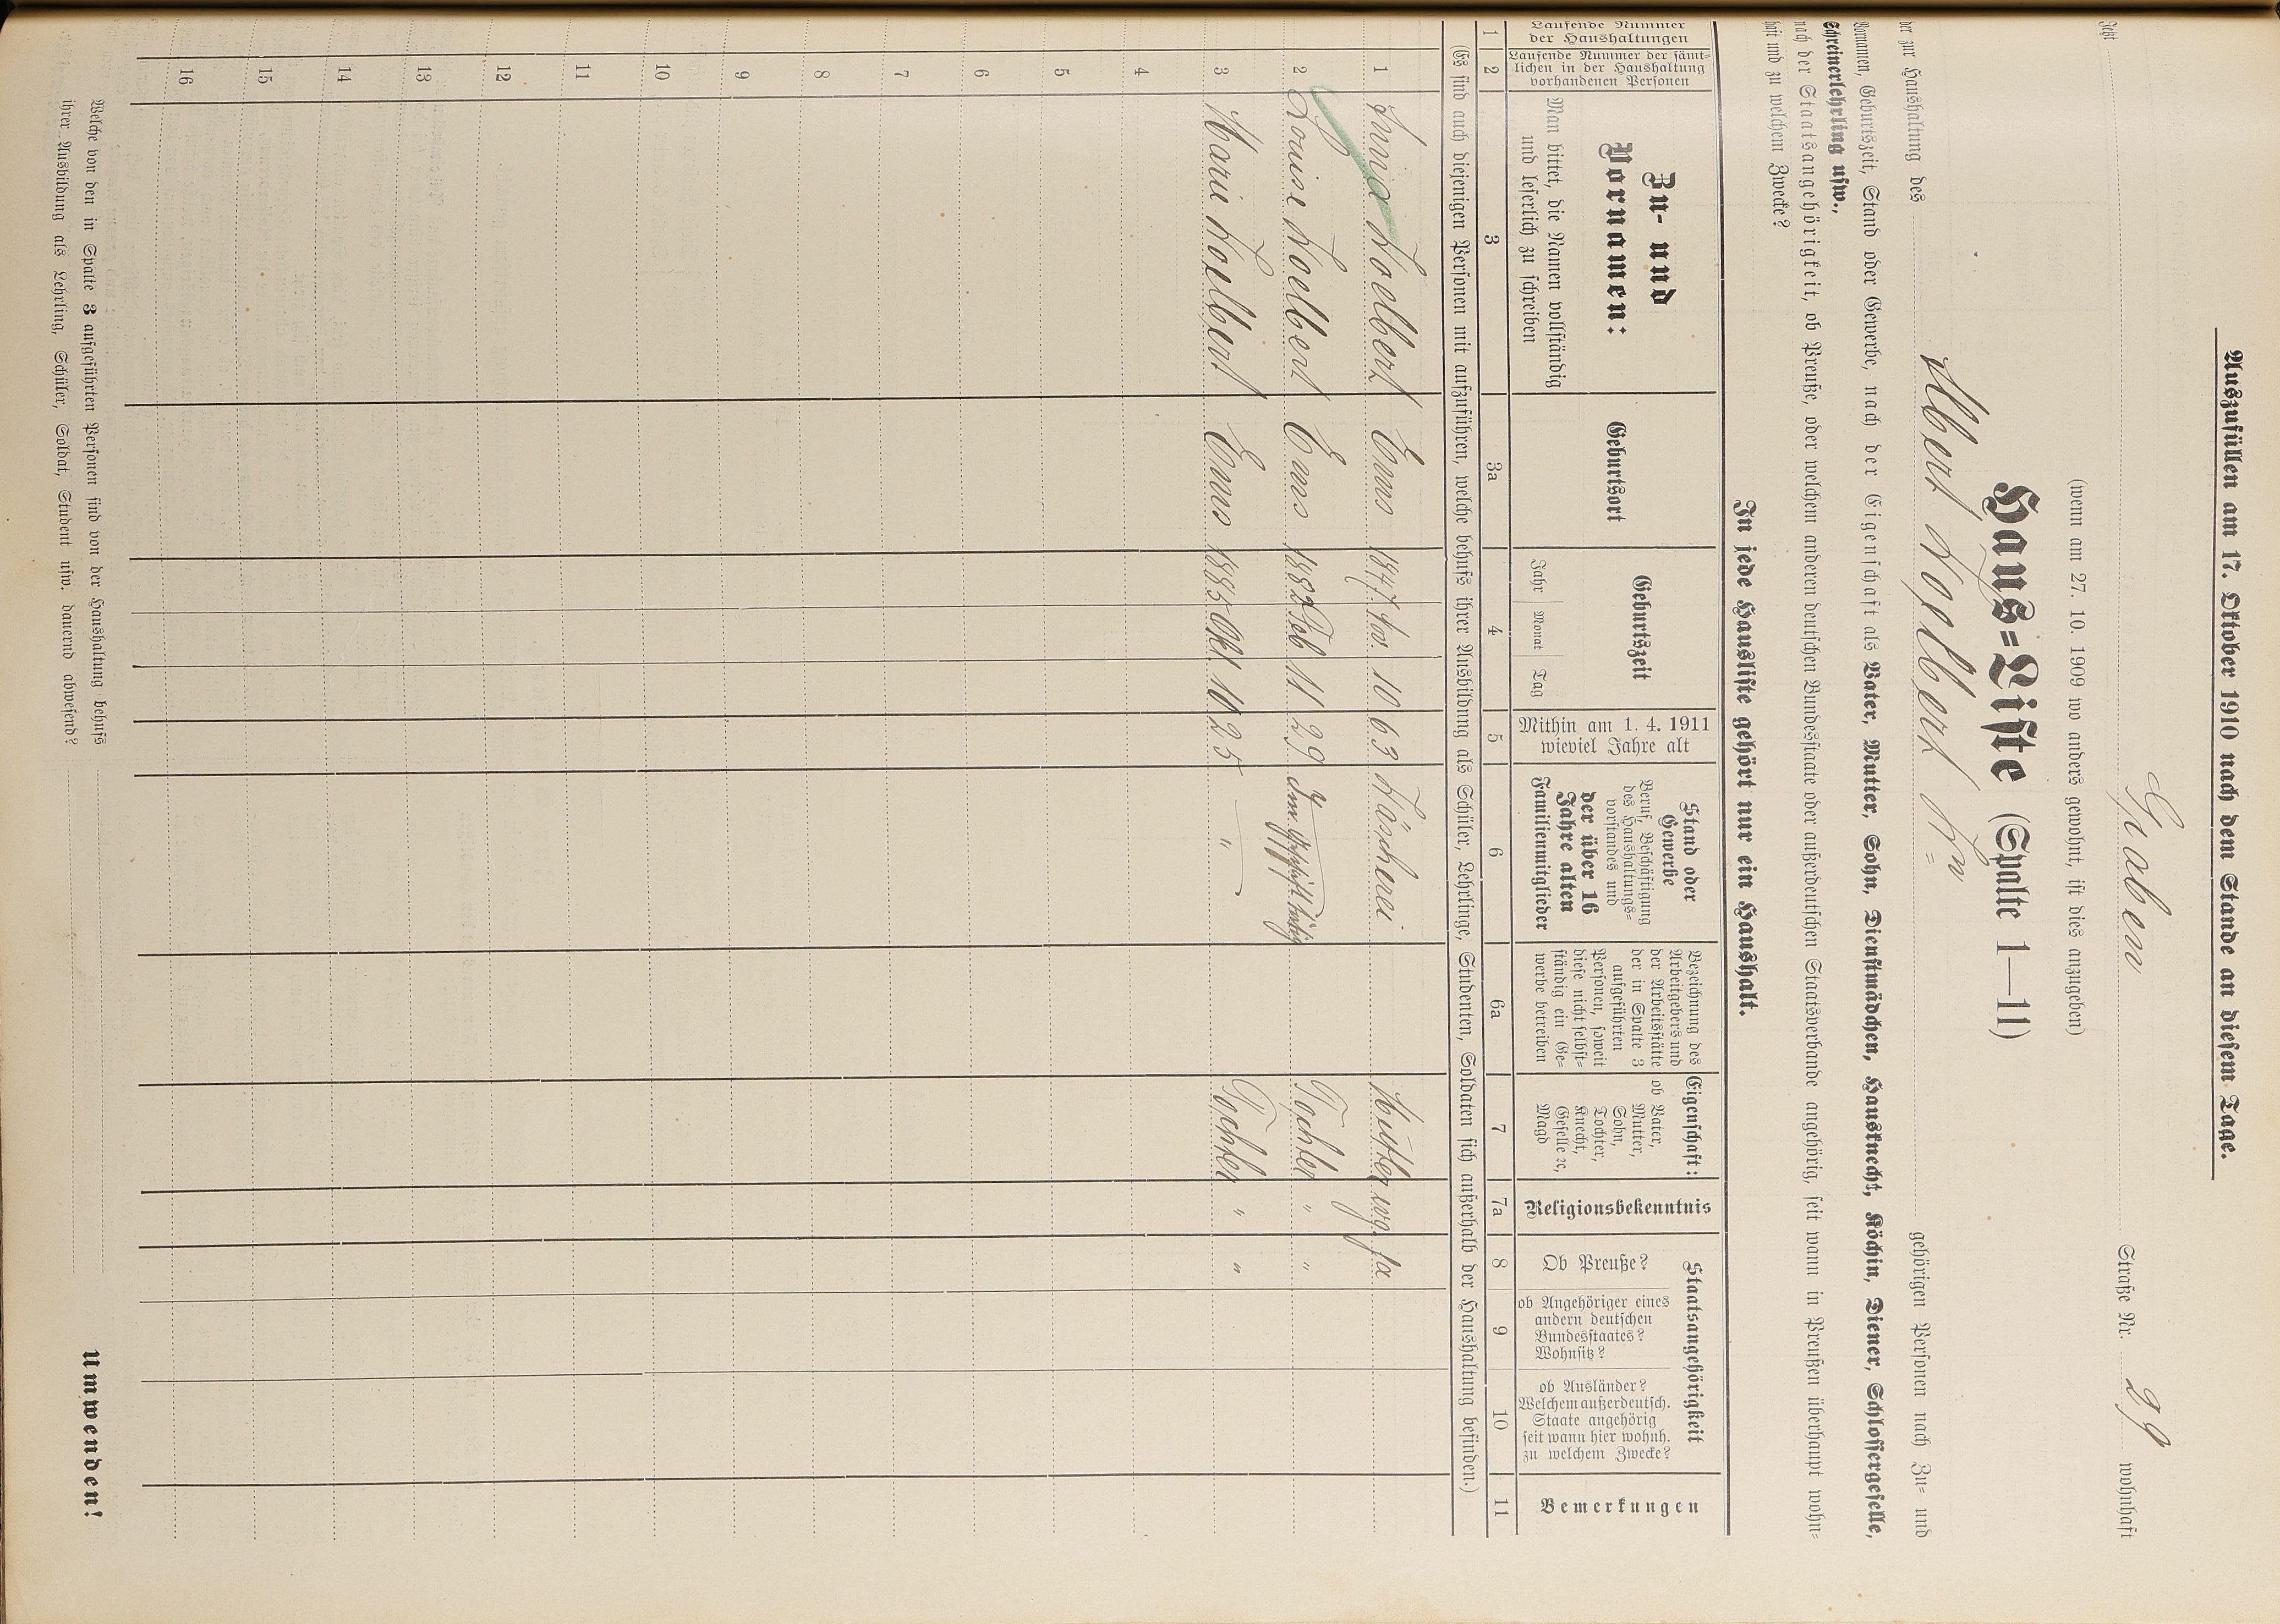 Auszufüllen am 17. Oktober 1910 nach dem Stande an diesem Tage.
Jetzt Graben Straße Nr. 29 wohnhaft
(wenn am 27. 10. 1909 wo anders gewohnt, ist dies anzugeben)
Haus-Liste (Spalte 1—11)
der zur Haushaltung des Albert Koelbert Wwe gehörigen Personen nach Zu- und
Vornamen, Geburtszeit, Stand oder Gewerbe, nach der Eigenschaft als Vater, Mutter, Sohn, Dienstmädchen, Hausknecht, Köchin, Diener, Schlossergeselle,
Schreinerlehrling usw.,
nach der Staatsangehörigkeit, ob Preuße, oder welchem anderen deutschen Bundesstaate oder außerdeutschen Staatsverbande angehörig, seit wann in Preußen überhaupt wohn-
haft und zu welchem Zwecke?
In jede Hausliste gehört nur ein Haushalt.
Laufende Nummer der Haushaltungen
Laufende Nummer der sämt-
lichen in der Haushaltung
vorhandenen Personen
Zu- und
Vornamen:
Man bittet, die Namen vollständig
und leserlich zu schreiben
Geburtsort
Geburtszeit
Jahr Monat Tag
Mithin am 1. 4. 1911
wieviel Jahre alt
Stand oder
Gewerbe
Beruf, Beschäftigung
des Haushaltungs-
vorstandes und
der über 16
Jahre alten
Familienmitglieder
Bezeichnung des
Arbeitgebers und
der Arbeitsstätte
der in Spalte 3
aufgeführten
Personen, soweit
diese nicht selbst-
ständig ein Ge-
werbe betreiben
Eigenschaft:
ob Vater,
Mutter,
Sohn,
Tochter,
Knecht,
Geselle ꝛc,
Magd
Religionsbekenntnis
Staatsangehörigkeit
Ob Preuße?
ob Angehöriger eines
andern deutschen
Bundesstaates?
Wohnsitz?
ob Ausländer?
Welchem außerdeutsch.
Staate angehörig
seit wann hier wohnh.
zu welchem Zwecke?
Bemerkungen
1 2 3 3a 4 5 6 6a 7 7a 8 9 10 11
(Es sind auch diejenigen Personen mit aufzuführen, welche behufs ihrer Ausbildung als Schüler, Lehrlinge, Studenten, Soldaten sich außerhalb der Haushaltung befinden.)
1 Anna Koelbert Ems 1847 Nov. 10 63 Wäscherei Mutter evg. ja
2 Louise Koelbert Ems 1882 Feb 11 29 Im Geschäft tätig Tochter " "
3 Marie Koelbert Ems 1885 Okt. 10 25 " Tochter " "
4
5
6
7
8
9
10
11
12
13
14
15
16
Welche von den in Spalte 3 aufgeführten Personen sind von der Haushaltung behufs
ihrer Ausbildung als Lehrling, Schüler, Soldat, Student usw. dauernd abwesend?
Umwenden!